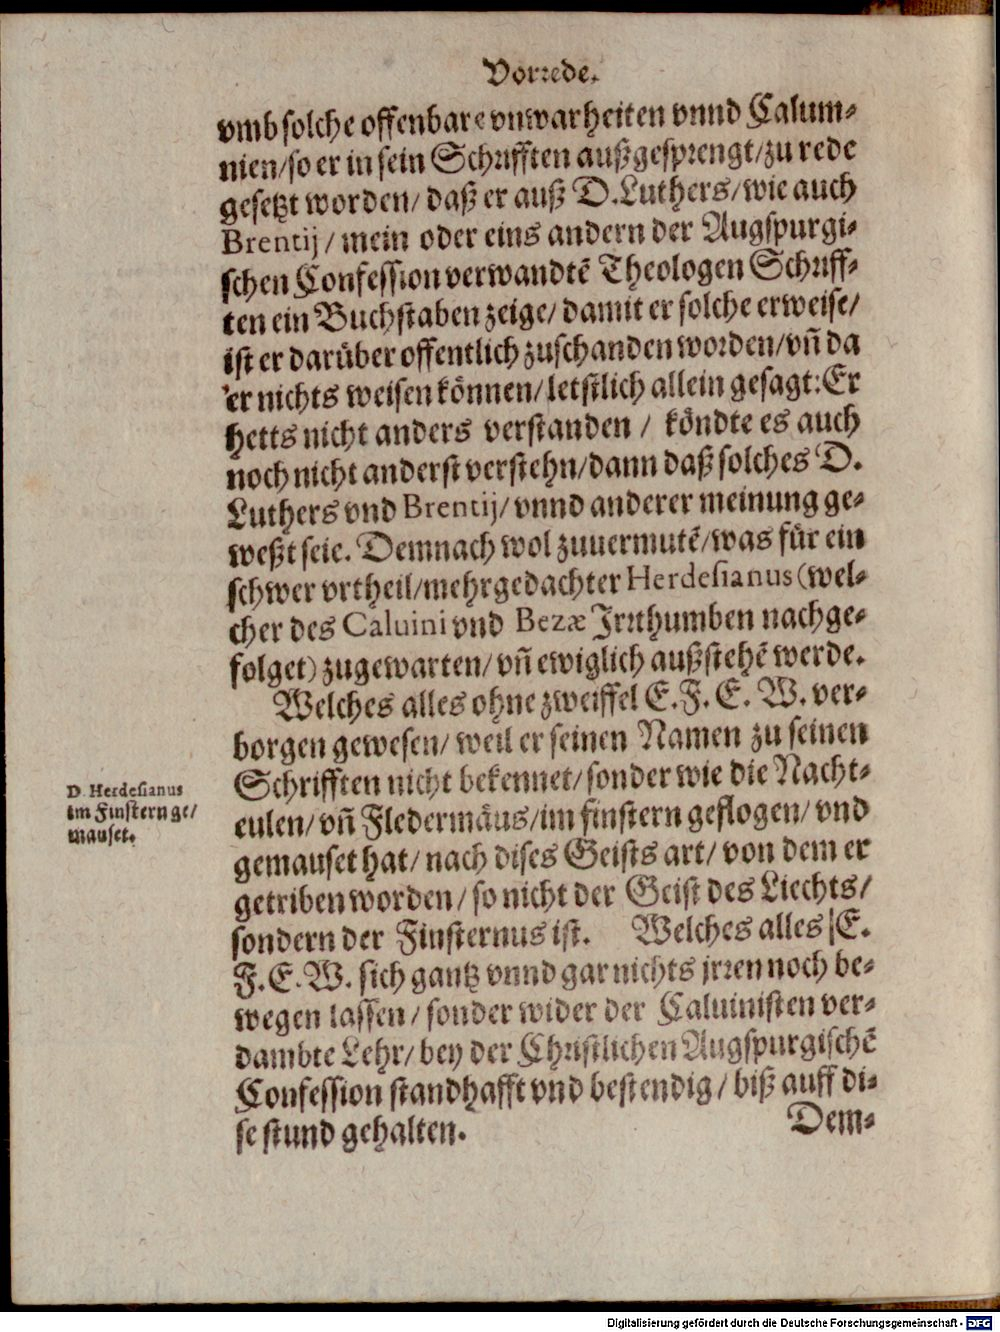 Vorrede.
vmb solche offenbare vnwarheiten vnnd Calum⸗
nien/so er in sein Schrifften außgesprengt/zu rede
gesetzt worden/ daß er auß D.Luthers/wie auch
Brentij/ mein oder eins andern der Augspurgi⸗
schen Confession verwandtẽ Theologen Schriff⸗
ten ein Buchstaben zeige/ damit er solche erweise/
ist er darüber offentlich zuschanden worden/vñ da
er nichts weisen können/letstlich allein gesagt:Er
hetts nicht anders verstanden / köndte es auch
noch nicht anderst verstehn/dann daß solches D.
Luthers vnd Brentij/ vnnd anderer meinung ge⸗
weßt seie. Demnach wol zuuermutẽ/was für ein
schwer vrtheil/mehrgedachter Herdesianus (wel⸗
cher des Caluini vnd Bezæ Irrthumben nachge⸗
folget) zugewarten/ vñ ewiglich außstehẽ werde.
Welches alles ohne zweiffel E.F. E. W. ver⸗
borgen gewesen/ weil er seinen Namen zu seinen
Schrifften nicht bekennet/sonder wie die Nacht⸗
eulen/ vñ Fledermäus/im finstern geflogen/ vnd
gemauset hat/ nach dises Geists art/ von dem er
getriben worden/ so nicht der Geist des Liechts/
sondern der Finsternus ist. Welches alles E.
F. E. W. sich gantz vnnd gar nichts jrren noch be⸗
wegen lassen/ sonder wider der Caluinisten ver⸗
dambte Lehr/ bey der Christlichen Augspurgischẽ
Confession standhafft vnd bestendig/ biß auff di⸗
se stund gehalten.
Dem⸗
D. Herdesianus
im Finstern ge/
mauset.
Digitalisierung gefördert durch die Deutsche Forschungsgemeinschaft - DFG